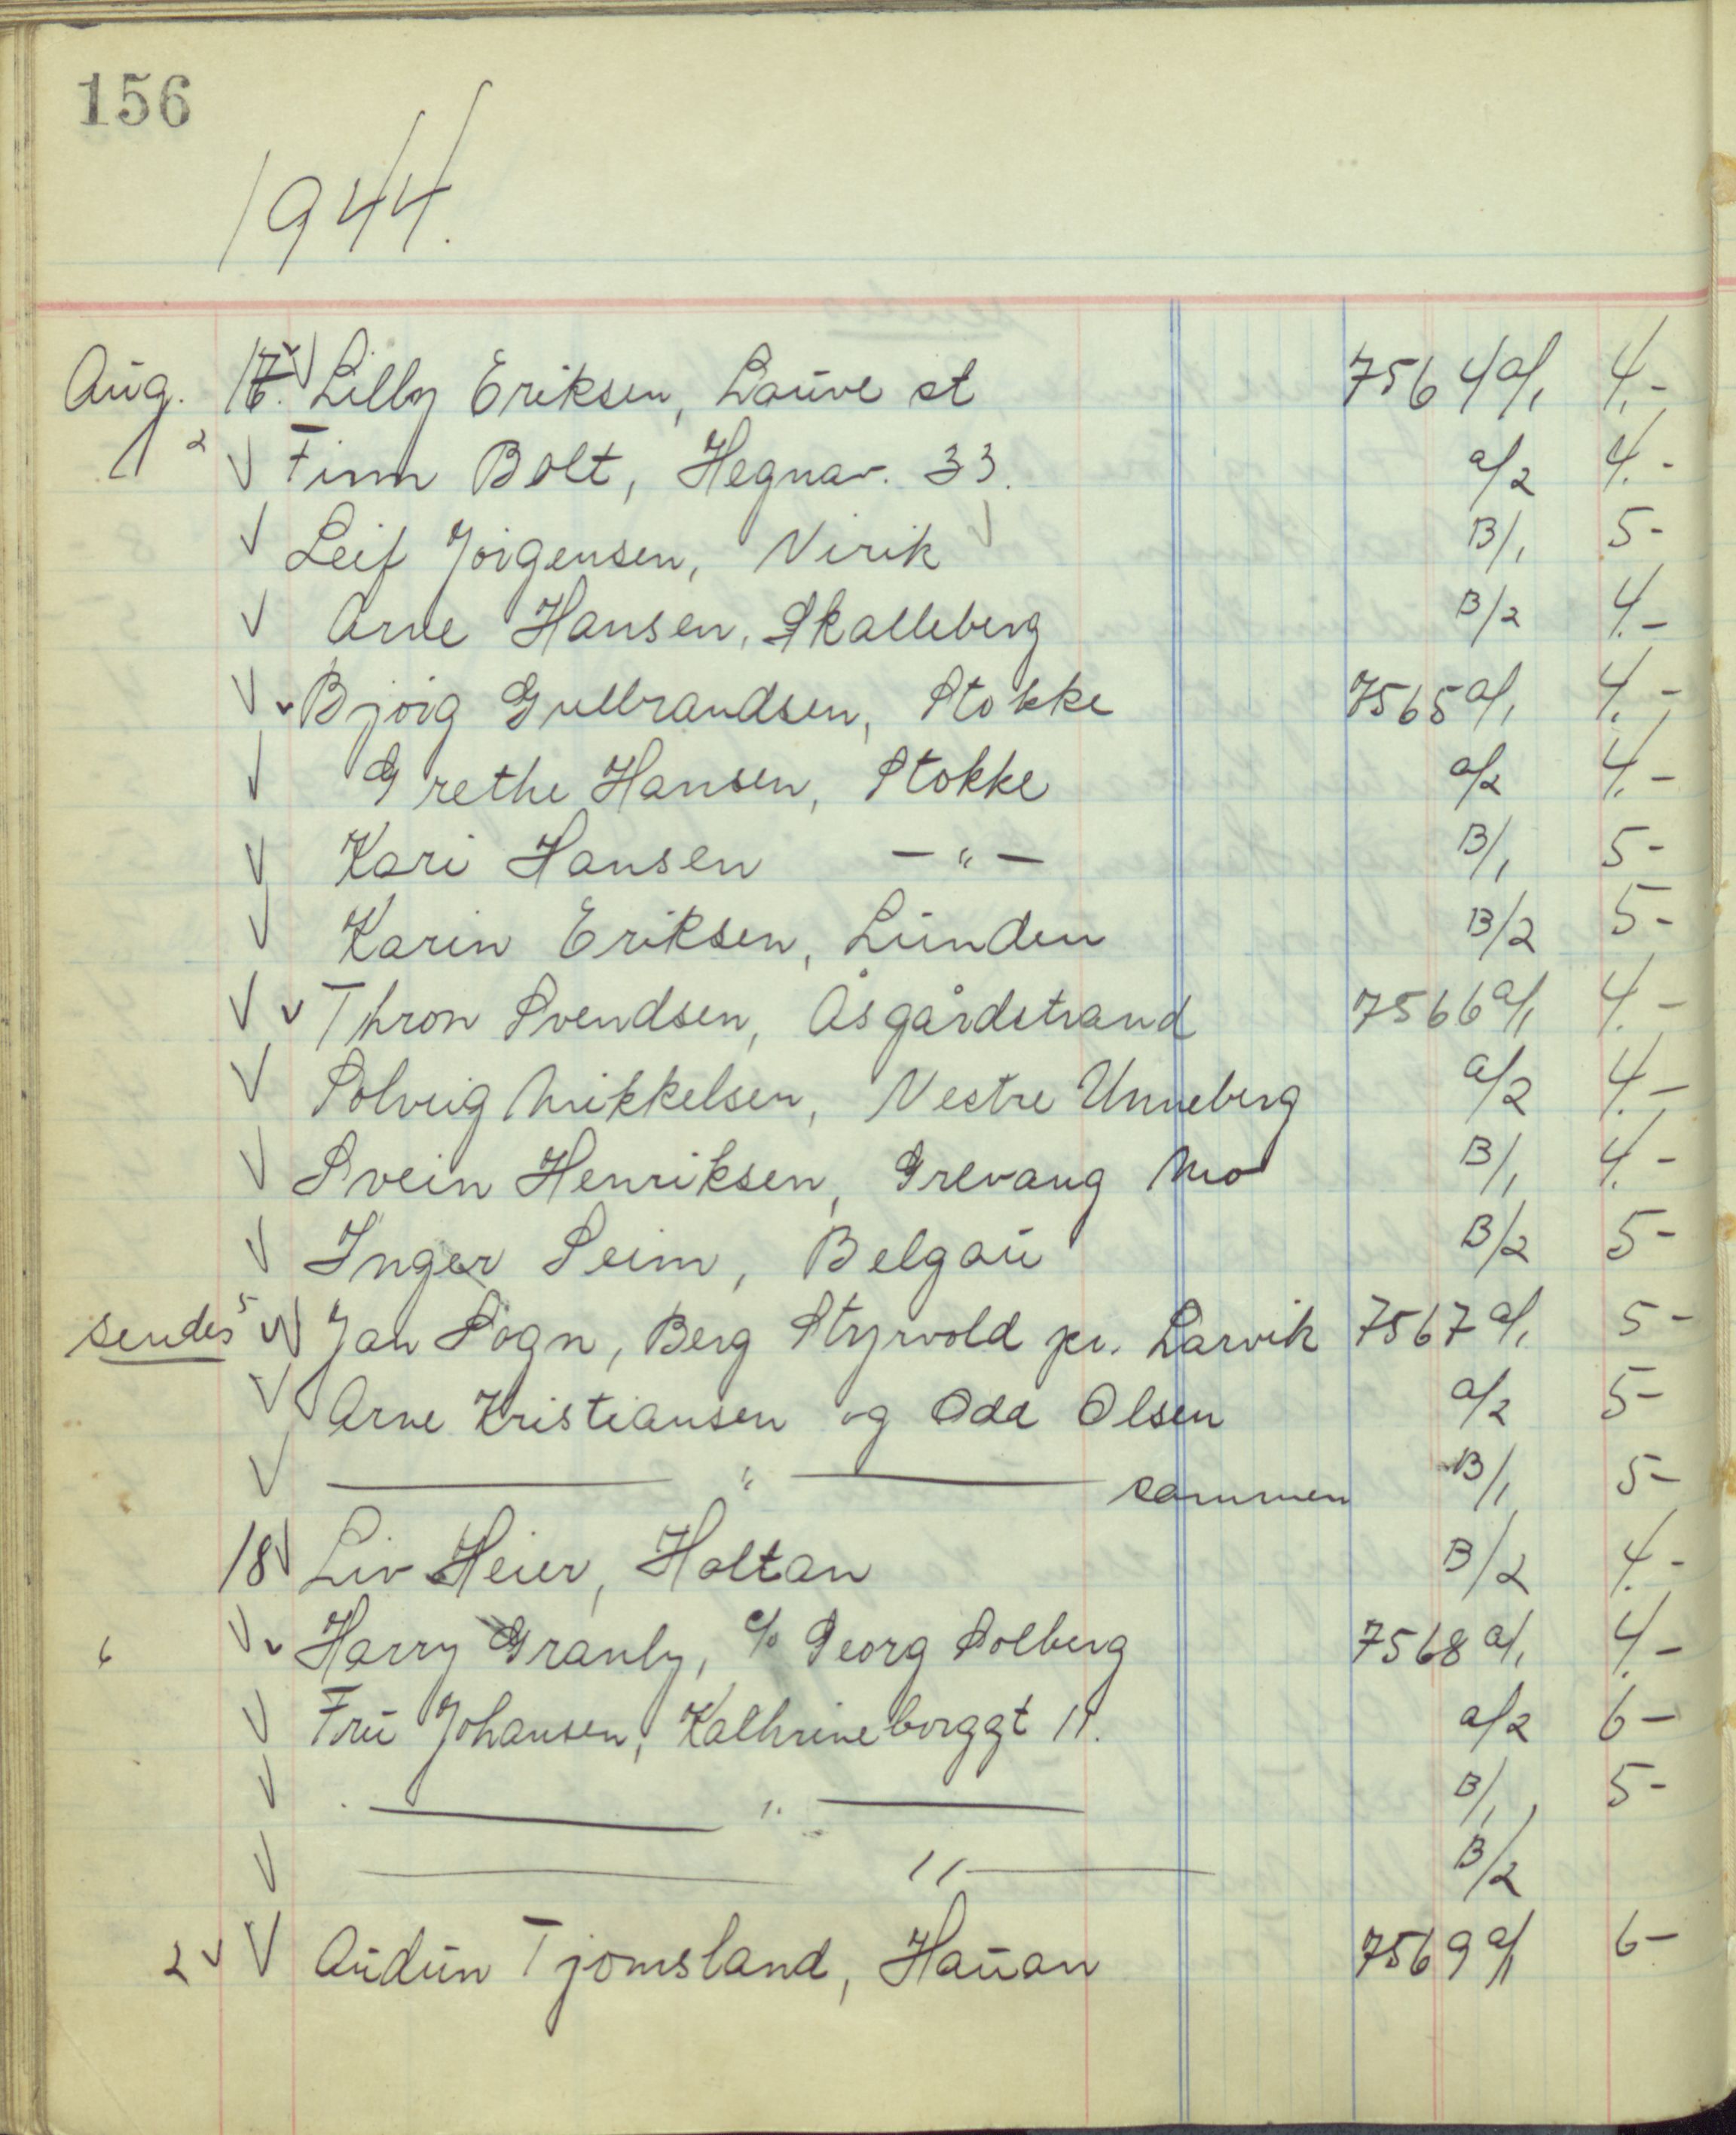 156
1944.
Aug. 17. Lilly Eriksen, Lauve st 7564 a/1 4.-
2 Finn Bolt, Hegnav. 33. a/2 4.-
Leif Jörgensen, Virik B/1 5-
Arne Hansen, Skalleberg B/2 4.-
Bjørg Gulbrandsen, Stokke 7565 a/1 4.-
Grethe Hansen, Stokke a/2 4.-
Kari Hansen -"- B/1 5-
Karin Eriksen, Lunden B/2 5-
Thron Svendsen, Åsgårdstrand 7566 a/1 4.-
Solveig Mikkelsen, Vestre Unneberg a/2 4.-
Svein Henriksen, Grevang Mo B/1 4.-
Inger Seim, Belgau B/2 5-
sendes 5 Jan Sogn, Berg Styrvold pr. Larvik 7567 a/1 5-
Arne Kristiansen og Odd Olsen a/2 5-
— " — sammen B/1 5-
18 Liv Heier, Holtan B/2 4.-
6 Harry Granly, c/o Georg Solberg 7568 a/1 4.-
Frü Johansen, Kathrineborggt 11. a/2 6-
— " — B/1 5-
— " — B/2
2 Audun Tjomsland, Hauan 7569 a/1 6-